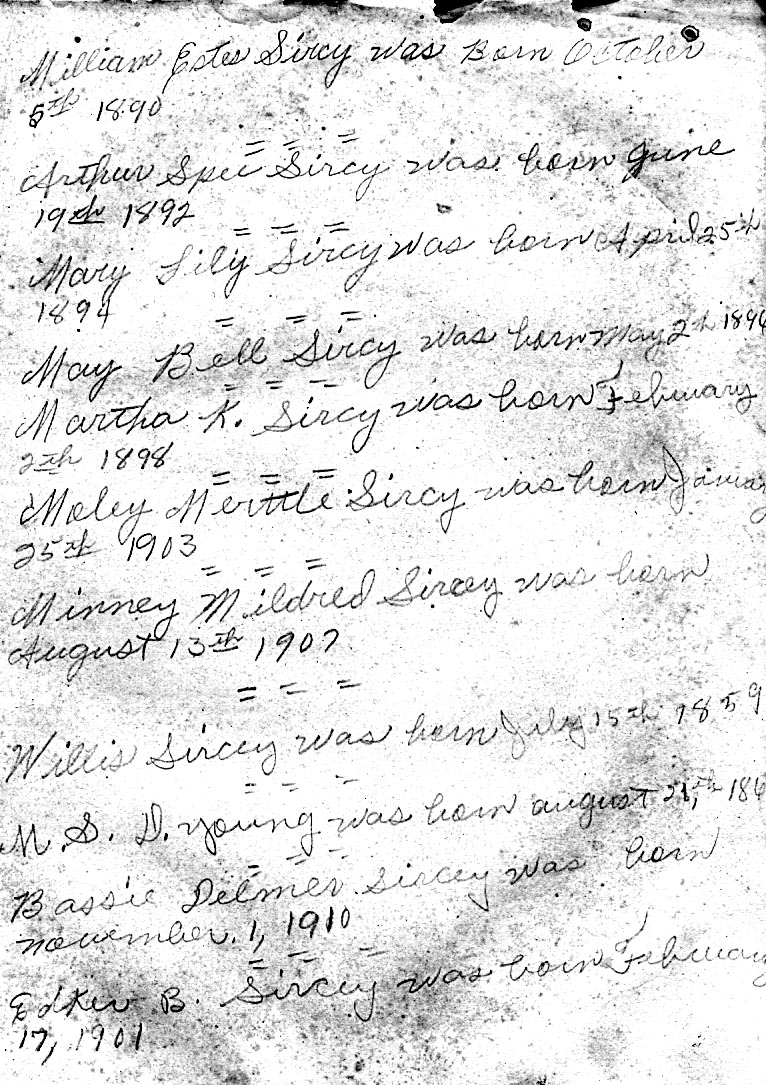 William Estes Sircy was Born October
5th 1890
= = =
Arthur Spei Sircy was born June
19th 1892
= = =
Mary Lily Sircy was born April 25th
1894
= = =
May Bell Sircy was born May 2th 1896
= = =
Martha K. Sircy was born February
2th 1898
= = =
Moley Merttle Sircy was born
25th 1903
= = =
Minney Mildred Sircey was born
August 13th 1907
= = =
Willis Sircey was born July 15th 1859
= = =
M. S. D. young was born august
= = =
Bassie Delmer Sircey was born
november. 1, 1910
= = =
B. Sircey was born February
17, 1901